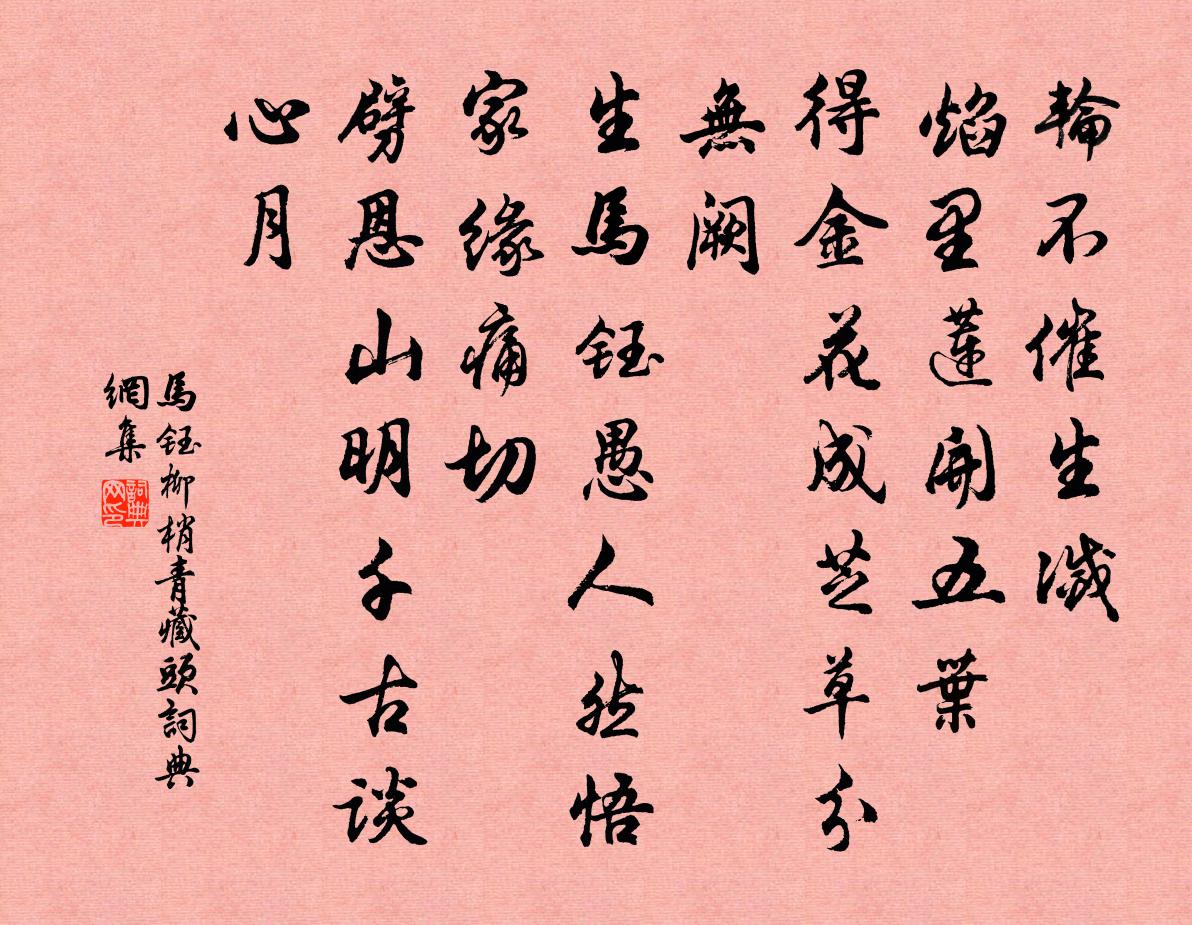 輪不催生滅
焰里蓮開五葉
得金花成芝草分
無闕
生馬鈺愚人然悟
家緣痛切
劈恩山明千古談
心月
馬鈺柳梢青藏頭詞典
網集
詞典
网印